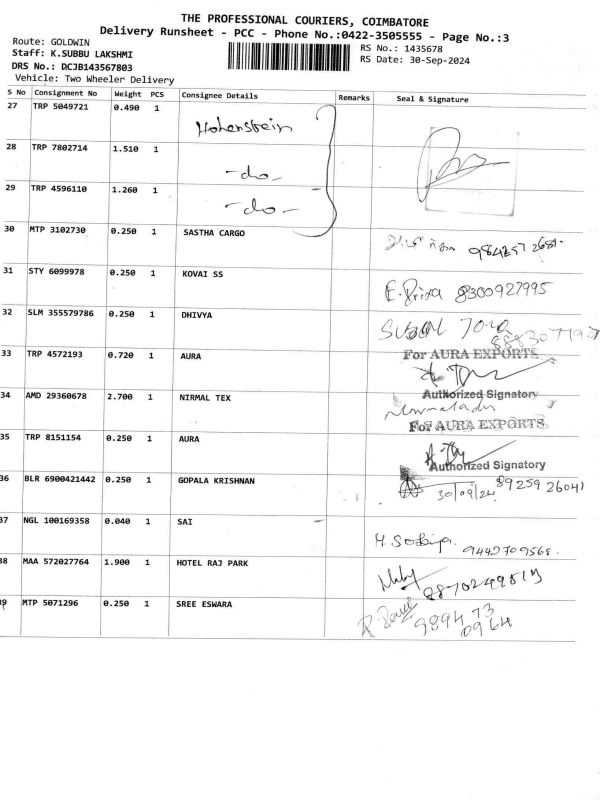 THE PROFESSIONAL COURIERS, COIMBATORE
Delivery Runsheet - PCC - Phone No.:0422-3505555 - Page No.:3
Route: GOLDWIN
Staff: K.SUBBU LAKSHMI
DRS No.: DCJB143567803
Vehicle: Two Wheeler Delivery
RS No.: 1435678
RS Date: 30-Sep-2024
S No Consignment No Weight PCS Consignee Details Remarks Seal & Signature
27 TRP 5049721 0.490 1 Hohenstein
28 TRP 7802714 1.510 1 -do-
29 TRP 4596110 1.260 1 -do-
30 MTP 3102730 0.250 1 SASTHA CARGO
31 STY 6099978 0.250 1 KOVAI SS E. Priya 8300927995
32 SLM 355579786 0.250 1 DHIVYA
33 TRP 4572193 0.720 1 AURA For AURA EXPORTS
Authorized Signatory
34 AMD 29360678 2.700 1 NIRMAL TEX
35 TRP 8151154 0.250 1 AURA For AURA EXPORTS
Authorized Signatory
36 BLR 6900421442 0.250 1 GOPALA KRISHNAN 30/09/24 89259 26041
37 NGL 100169358 0.040 1 SAI 9442709568.
38 MAA 572027764 1.900 1 HOTEL RAJ PARK
39 MTP 5071296 0.250 1 SREE ESWARA 9894 73
0964